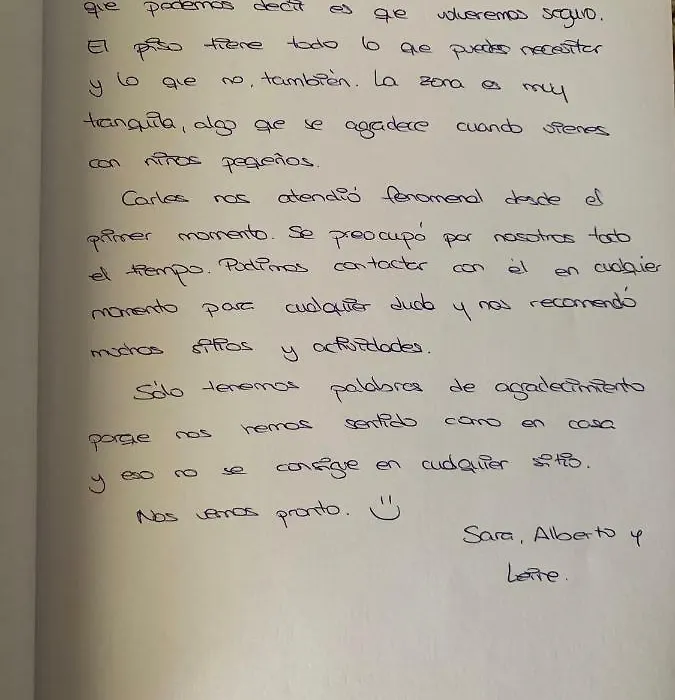 que podemos decir es que volveremos seguro.
El piso tiene todo lo que puedes necesitar
y lo que no, también. La zona es muy
tranquila, algo que se agradece cuando vienes
con niños pequeños.
Carles nos atendió fenomenal desde el
primer momento. Se preocupó por nosotros todo
el tiempo. Podíamos contactar con él en cualquier
momento para cualquier duda y nos recomendó
muchos sitios y actividades.
Sólo tenemos palabras de agradecimiento
porque nos hemos sentido como en casa
y eso no se consigue en cualquier sitio.
Nos vemos pronto. :)
Sara, Alberto y
Leire.